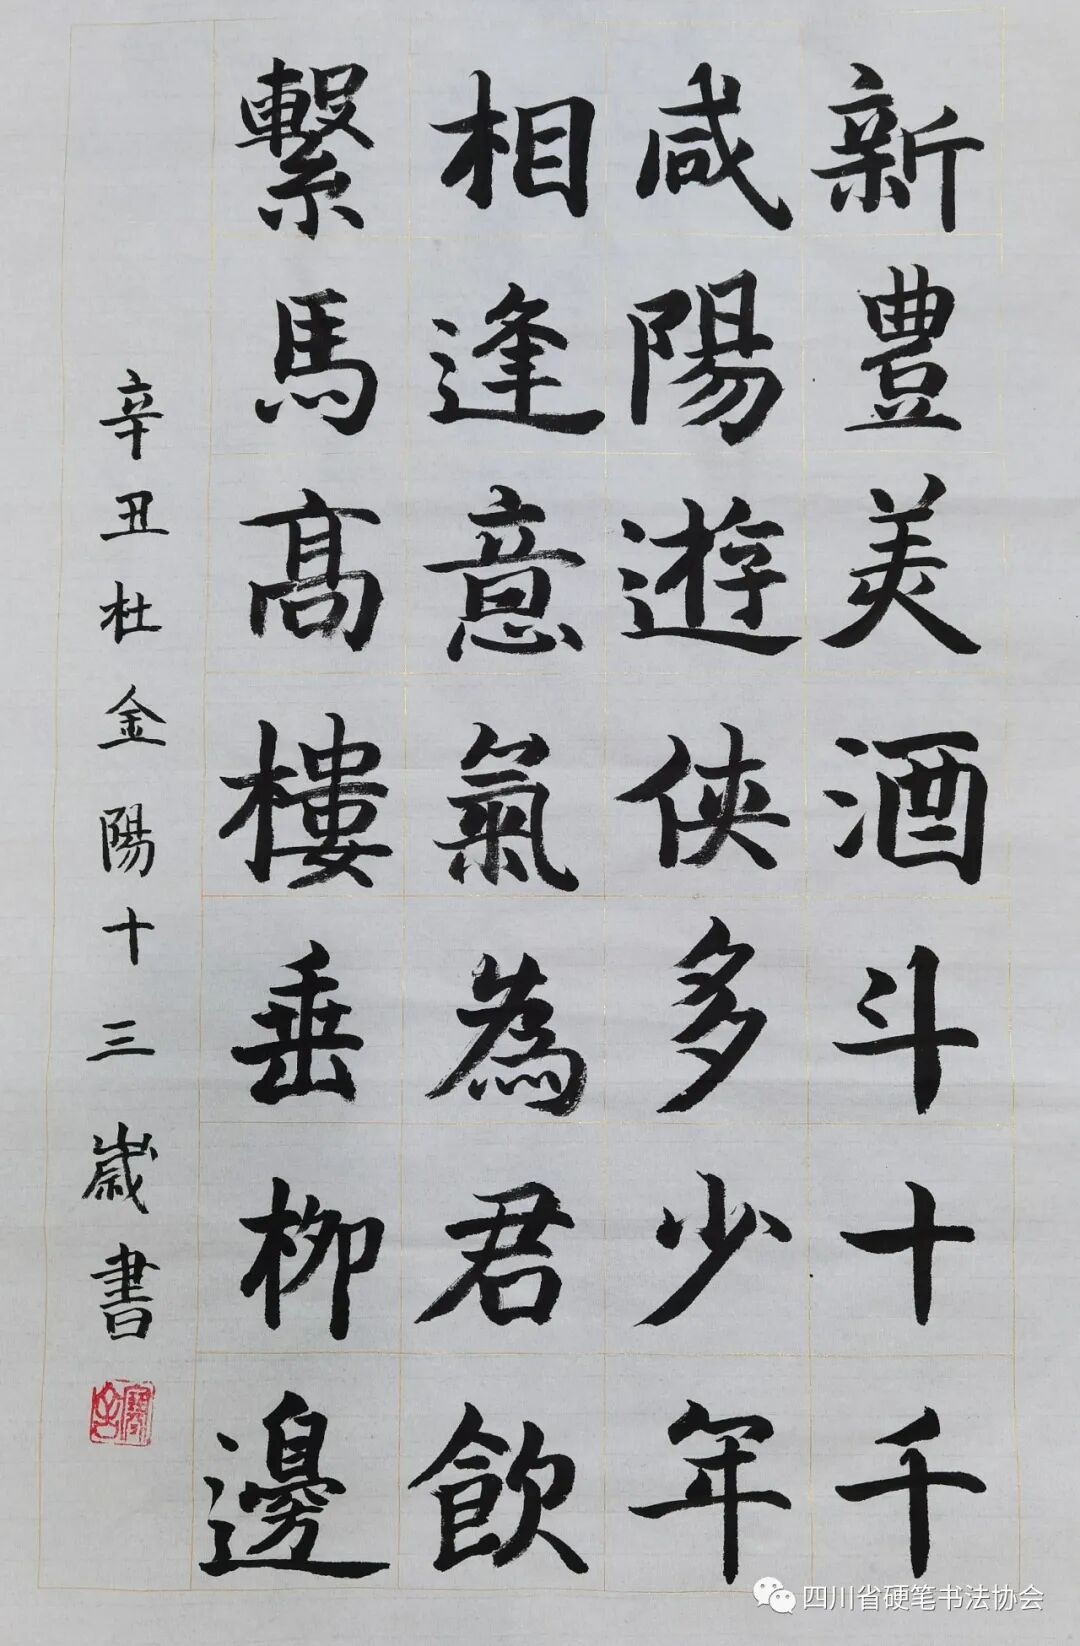 新豐美酒斗十千
咸陽遊俠多少年
相逢意氣為君飲
繫馬高樓垂柳邊
辛丑杜金陽十三歲書
四川省硬笔书法协会